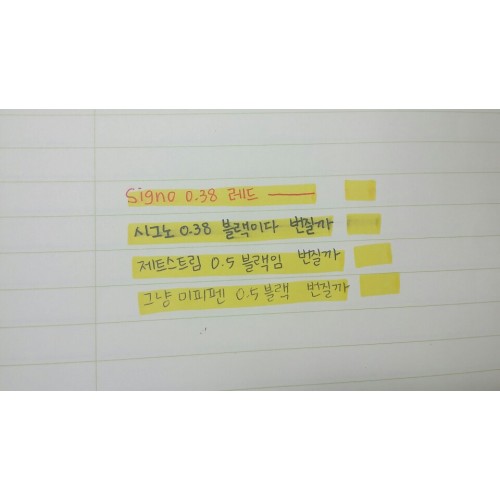 Signo 0.38 레드
시그노 0.38 블랙이다 번질까
제트스트림 0.5 블랙임 번질까
그냥 미피펜 0.5 블랙 번질까